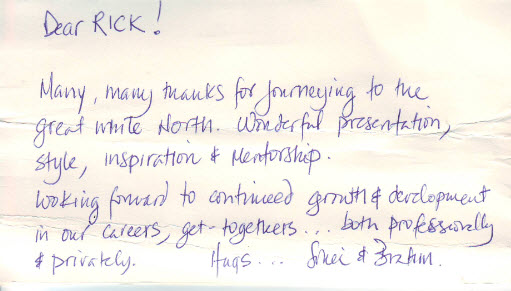 Dear RICK!
Many, many thanks for journeying to the
great white North. Wonderful presentation,
style, inspiration & Mentorship.
Looking forward to continued growth & development
in our careers, get-togethers... both professionally
& privately. Hugs... &